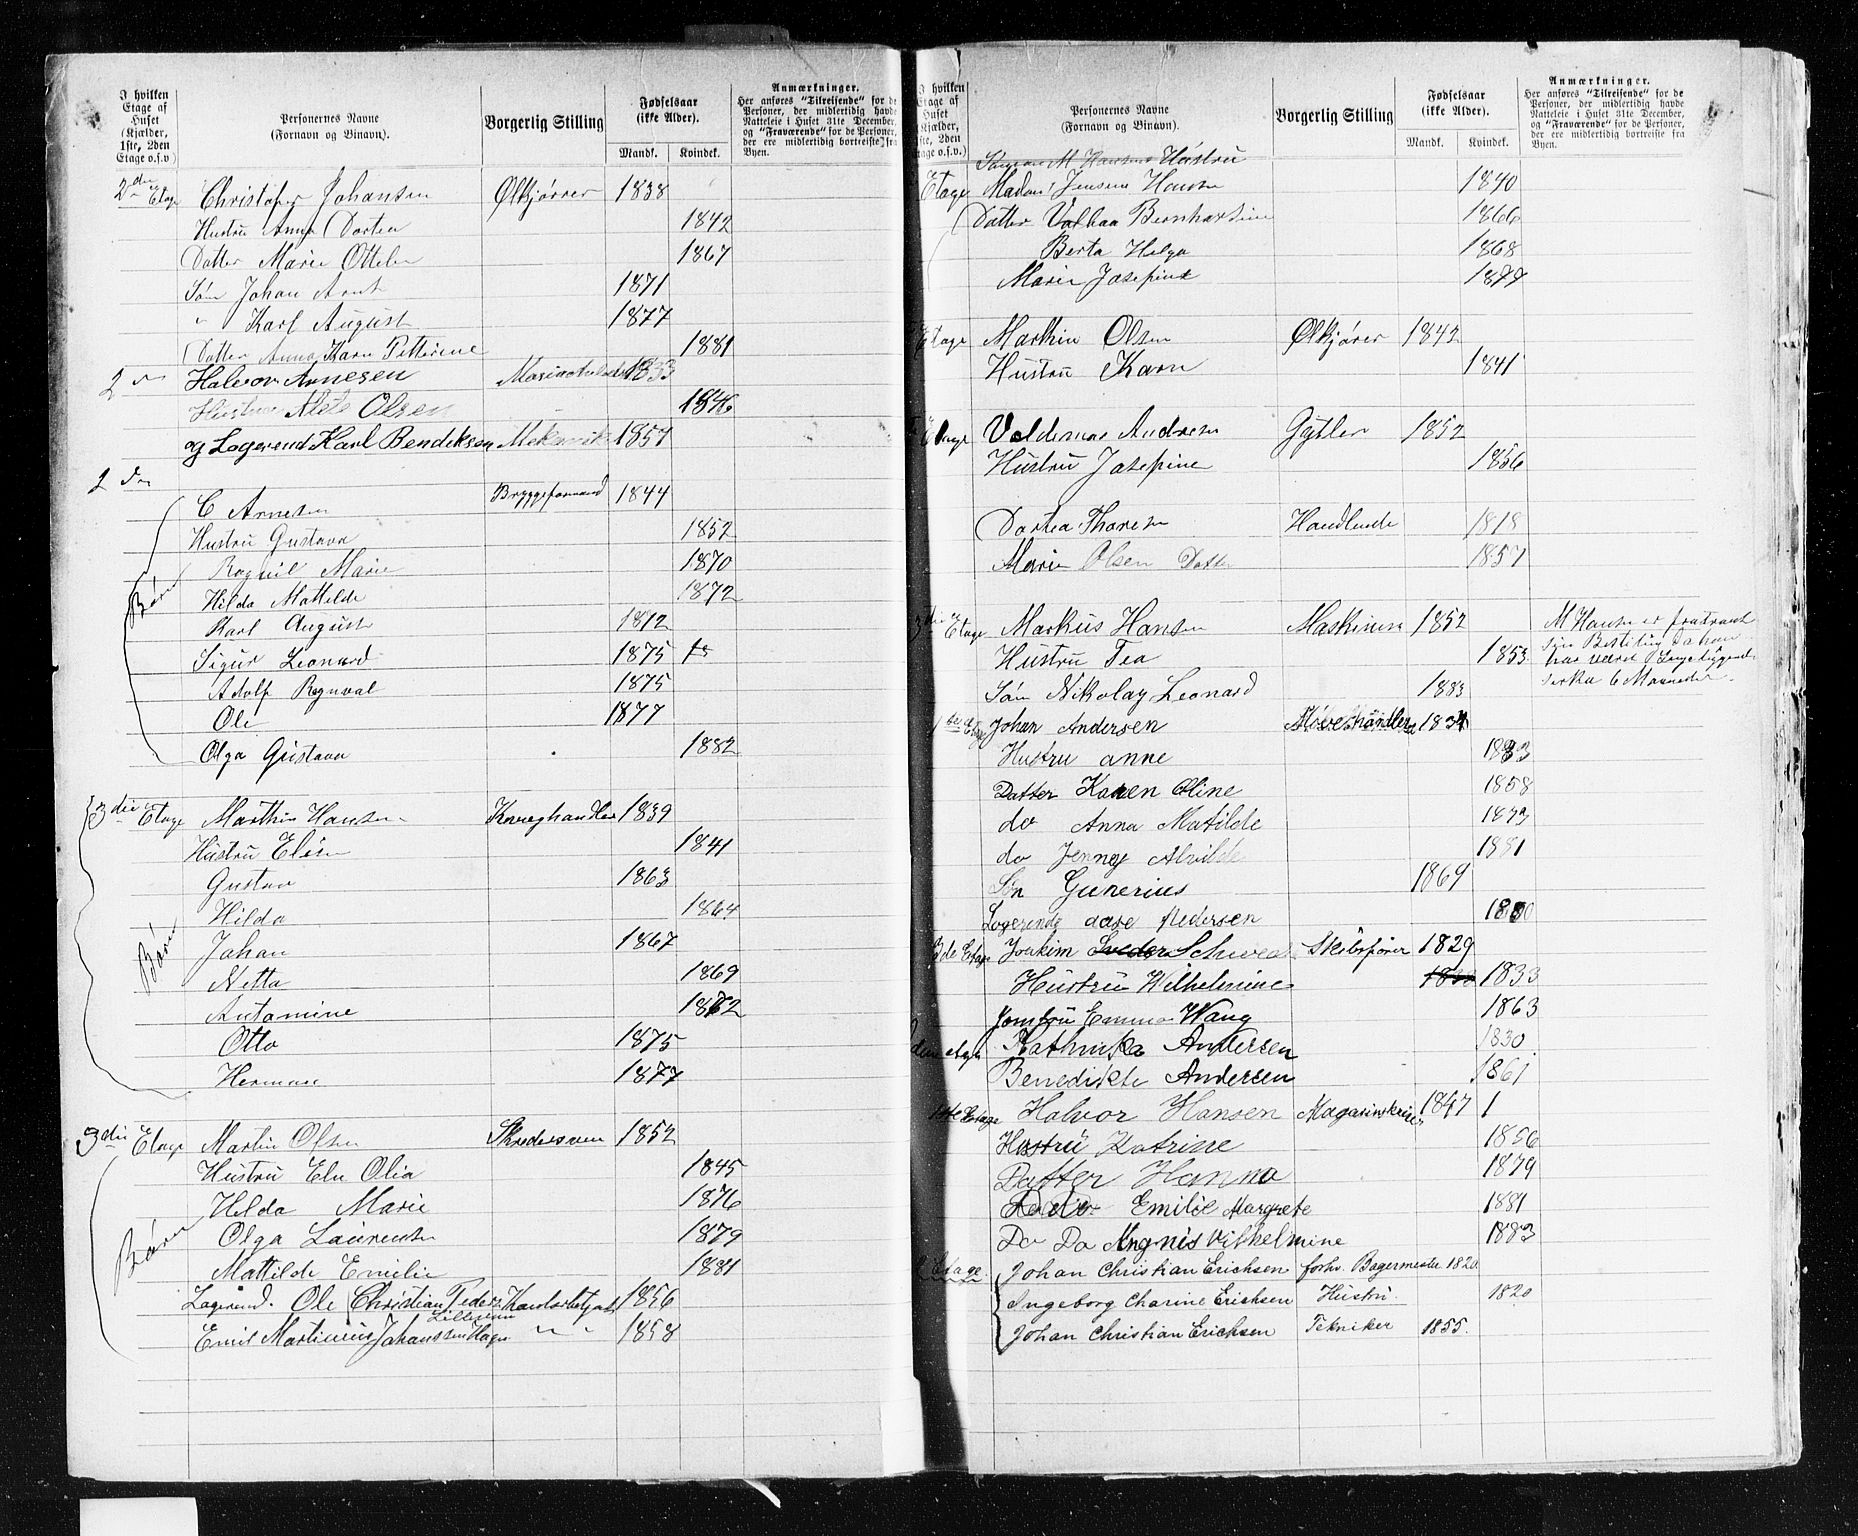 I hvilken
Etage af
Huset
(Kjælder,
1ste, 2den
Etage o.s.v)
Personernes Navne
(Fornavn og Binavn).
Borgerlig Stilling
Fødselsaar
(ikke Alder).
Mandk. Kvindek.
Anmærkninger.
Her anføres "Tilreisende" for de
Personer, der midlertidig havde
Natteleie i Huset 31te December,
og "Fraværende" for de Personer,
der ere midlertidig bortreiste fra
Byen.
2den Etage Christofer Johansen Ølkjører 1838
Hustru Anna Dortea 1842
Datter Marie Ottelie 1867
Søn Johan Arnt 1871
" Karl August 1877
Datter Anna Karn Petterine 1881
2 Halvor Arnesen 1833
Hustru Olsen 1846
og Logerend Karl Bendiksen Mekanik 1857
2
C Arnesen Bryggeformand 1844
Hustru Gustava 1852
Børn
Ragnil Marie 1870
Hilda Mattilde 1872
Karl August 1872
Sigur Leonard 1875
Adolf Regnval 1875
Ole 1877
Olga Gustava 1882
3die Etage Marthin Hansen 1839
Hustru Elise 1841
Børn
Gustav 1863
Hilda 1864
Johan 1867
Netta 1869
Antomine 1872
Otto 1875
Herman 1877
3die Etage Martin Olsen Skredersven 1852
Hustru Eln Olia 1845
Børn
Hilda Marie 1876
Olga Laurentse 1879
Mattilde Emilie 1881
Logerend. Ole Christian Peders. Kontorbetjent 1856
Lillesem
Emil Martinius Johanssen Hagn " " 1858
I hvilken
Etage af
Huset
(Kjælder,
1ste, 2den
Etage o.s.v.)
Personernes Navne
(Fornavn og Binavn).
Borgerlig Stilling
Fødselsaar
(ikke Alder).
Mandk. Kvindek.
Anmærkninger.
Her anføres "Tilreisende" for de
Personer, der midlertidig havde
Natteleie i Huset 31te December,
og "Fraværende" for de Personer,
der ere midlertidig bortreiste fra
Byen.
M Hansens Hustru
Etage Madam Jensine Hansen 1840
Datter Valbaa Bernhardine 1866
Berta Helga 1868
Marie Josepine 1877
Etage Marthin Olsen Ølkjører 1842
Hustru Karn 1841
Etage Valdemar Andresen Gjytler 1852
Hustru Josepine 1856
Dortea Thoresen Handlende 1818
Marie Olsen Datter 1857
3die Etage Markus Hansen Maskinist 1852 M Hansen er fratraat
Hustru Tea 1853. sin Bestilling da han
har været Sengeliggend.
Søn Nikolay Leonard 1883 serka 6 Maaneder.
1ste Etage Johan Andersen 1834
Hustru anne 1833
Datter Karen Oline 1858
do Anna Matilde 1873
do Jenney Alvilde 1881
Søn Gunerius 1869
Logerende aase Pedersen 1800
3de Etage Joakim Schwed Skibsfører 1829
Hustru Wilhelmine 1833
Jomfru Emma Wang 1863
den etage Kathinka Andersen 1830
Benedikte Andersen 1861
1ste Etage Halvor Hansen Magasinskriver 1847 1
Hustru Katrine 1856
Datter Hanna 1879
Do do Emilie Margrete 1881
Do Do Angnis Vilhelmine 1883
Etage. Johan Christian Erichsen forhv. Bagermester 1820
Ingeborg Charine Erichsen Hustru. 1820
Johan Christian Erichsen Tekniker 1855.